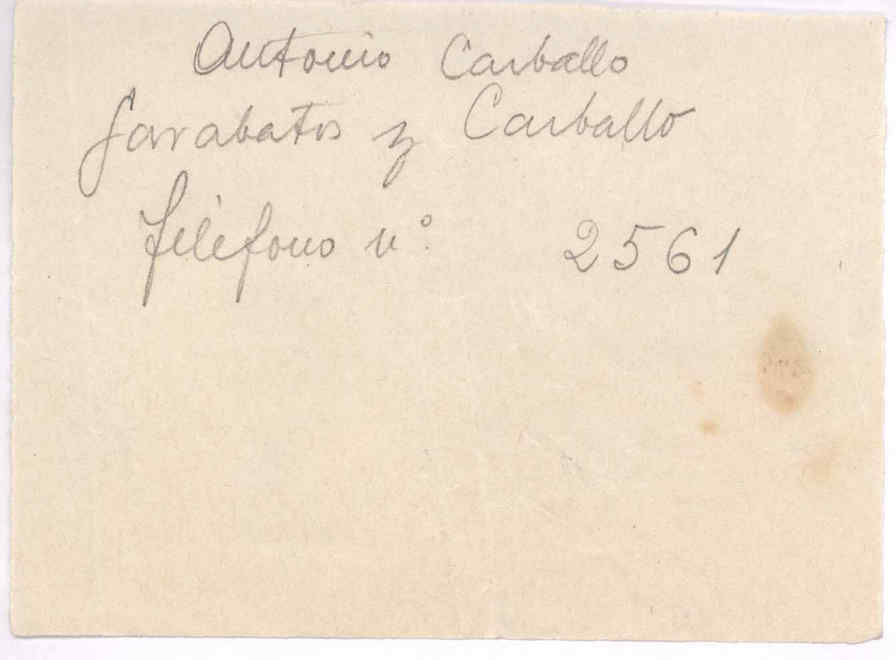 Antonio Carballo
Garabatos y Carballo
Teléfono nº 2561